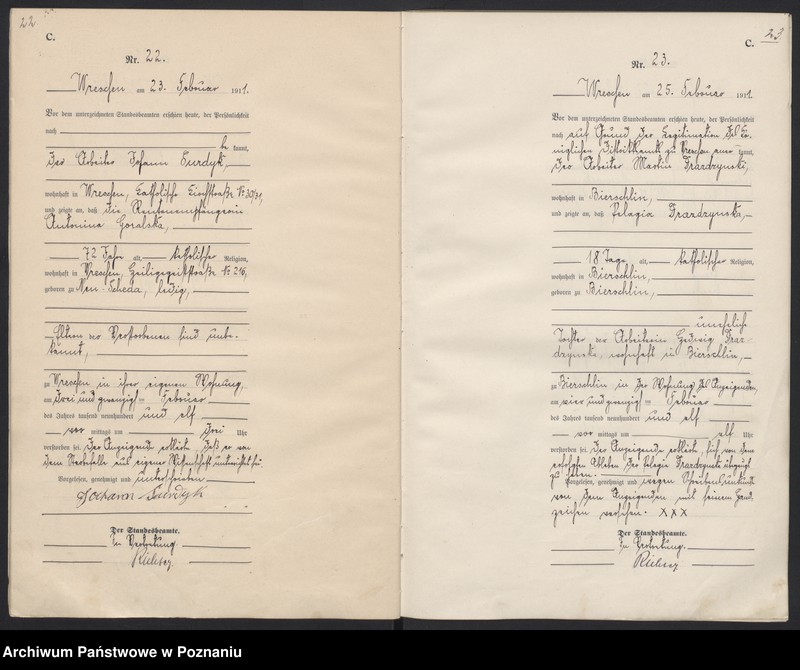 22
C.
Nr. 22.
Wreschen am 23. Februar 1911.
Vor dem unterzeichneten Standesbeamten erschien heute, der Persönlichkeit
nach
be kannt,
der Arbeiter Johann Surdyk,
wohnhaft in Wreschen, Katholische Kirchstraße
und zeigte an, daß die Rentenempfängerin
Antonina Goralska,
72 Jahre alt, katholischer Religion,
wohnhaft in Wreschen, Heiligegeiststraße № 216,
geboren zu Neu-Scheda, ledig,
Eltern der Verstorbenen sind unbe-
kannt,
zu Wreschen in ihrer eigenen Wohnung,
am drei und zwanzigsten Februar
des Jahres tausend neunhundert und elf
vor mittags um drei Uhr
verstorben sei. Der Anzeigende erklärte, daß er von
dem Sterbefalle aus eigener Wissenschaft unterrichtet sei.
Vorgelesen, genehmigt und unterschrieben
Johann Surdyk
Der Standesbeamte.
In Vertretung.
23
C.
Nr. 23.
Wreschen am 25. Februar 1911.
Vor dem unterzeichneten Standesbeamten erschien heute, der Persönlichkeit
nach auf Grund der Legitimation des Kö-
niglichen Distriktsamts zu Wreschen aner kannt,
der Arbeiter Martin Frardzynski,
wohnhaft in Bierschlin,
und zeigte an, daß Pelagia Frardzynska,
18 Tage alt, katholischer Religion,
wohnhaft in Bierschlin,
geboren zu Bierschlin,
uneheliche
Tochter der Arbeiterin Hedwig Frar-
dzynska, wohnhaft in Bierschlin,
zu Bierschlin in der Wohnung des Anzeigenden,
am vier und zwanzigsten Februar
des Jahres tausend neunhundert und elf
vor mittags um elf Uhr
verstorben sei. Der Anzeigende erklärte, sich von dem
erfolgten Ableben der Pelagia Frardzynska überzeugt
zu haben.
Vorgelesen, genehmigt und wegen Schreibensunkunde
von dem Anzeigenden mit seinem Hand-
zeichen versehen. XXX
Der Standesbeamte.
In Vertretung.
Archiwum Państwowe w Poznaniu